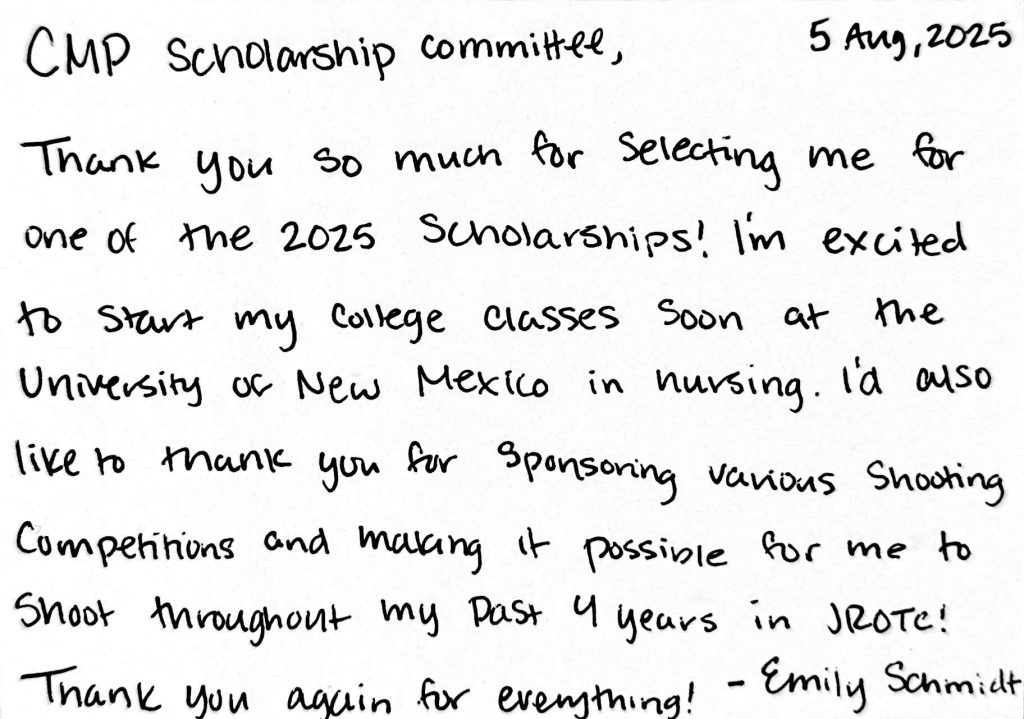 CMP Scholarship committee, 5 Aug, 2025
Thank you so much for selecting me for
one of the 2025 Scholarships! I'm excited
to start my college classes soon at the
University of New Mexico in nursing. I'd also
like to thank you for sponsoring various shooting
competitions and making it possible for me to
shoot throughout my past 4 years in JROTC!
Thank you again for everything! - Emily Schmidt